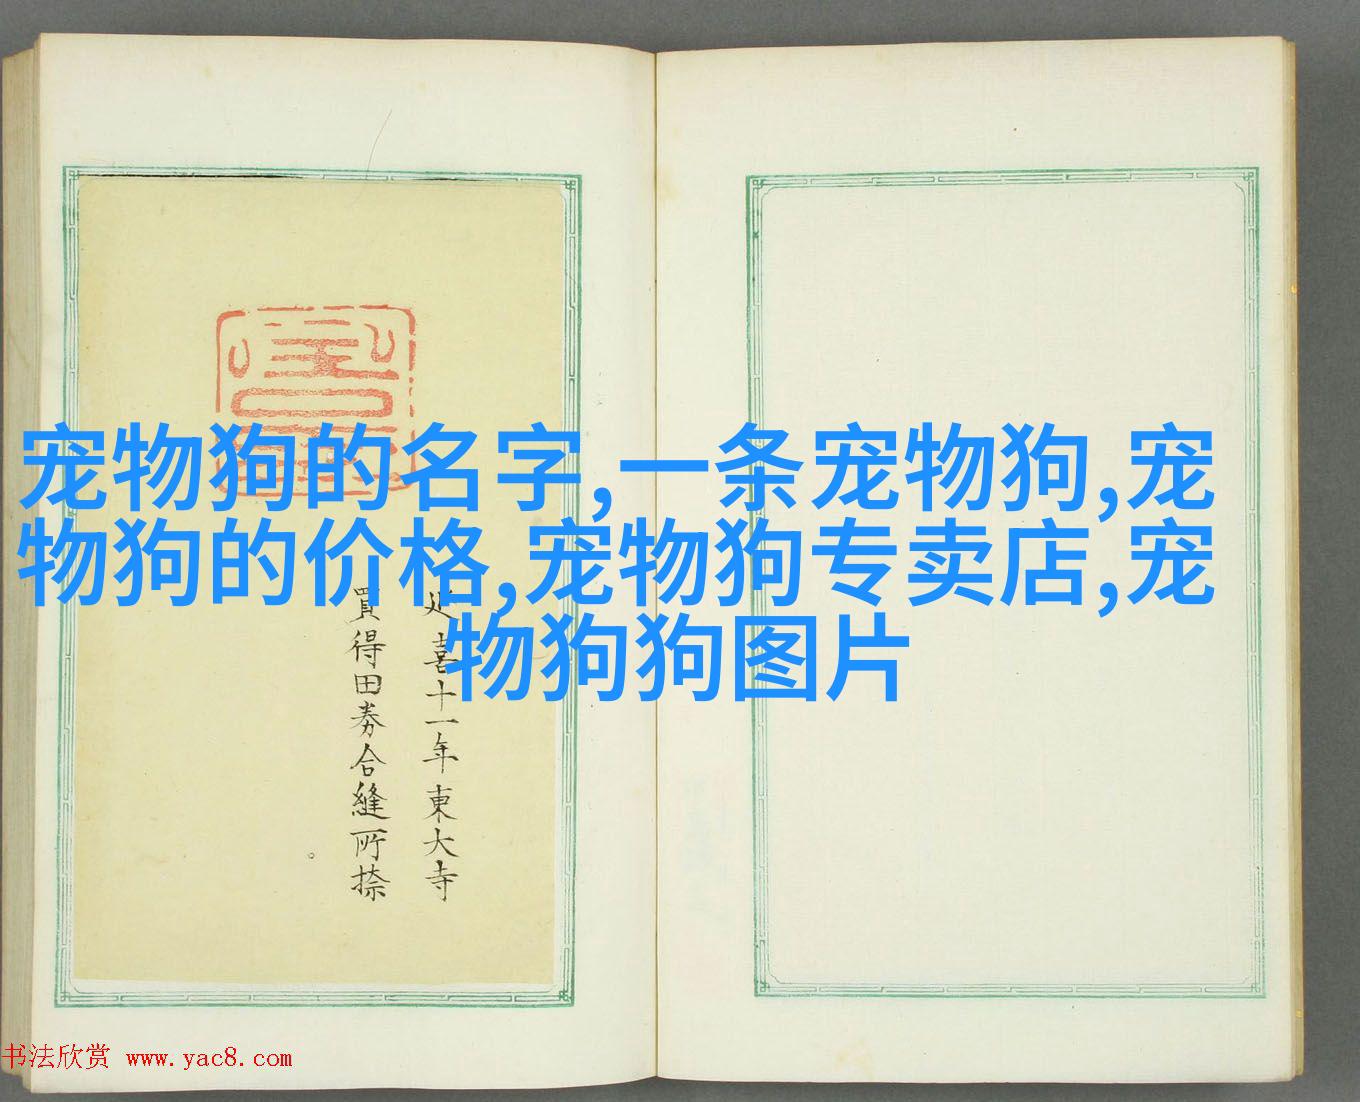 宠物狗的名字,一条宠物狗,宠
物狗的价格,宠物狗专卖店,宠
物狗狗图片
延喜十一年東大寺
買得田券合縫所捺
書法欣赏 www.yac8.com